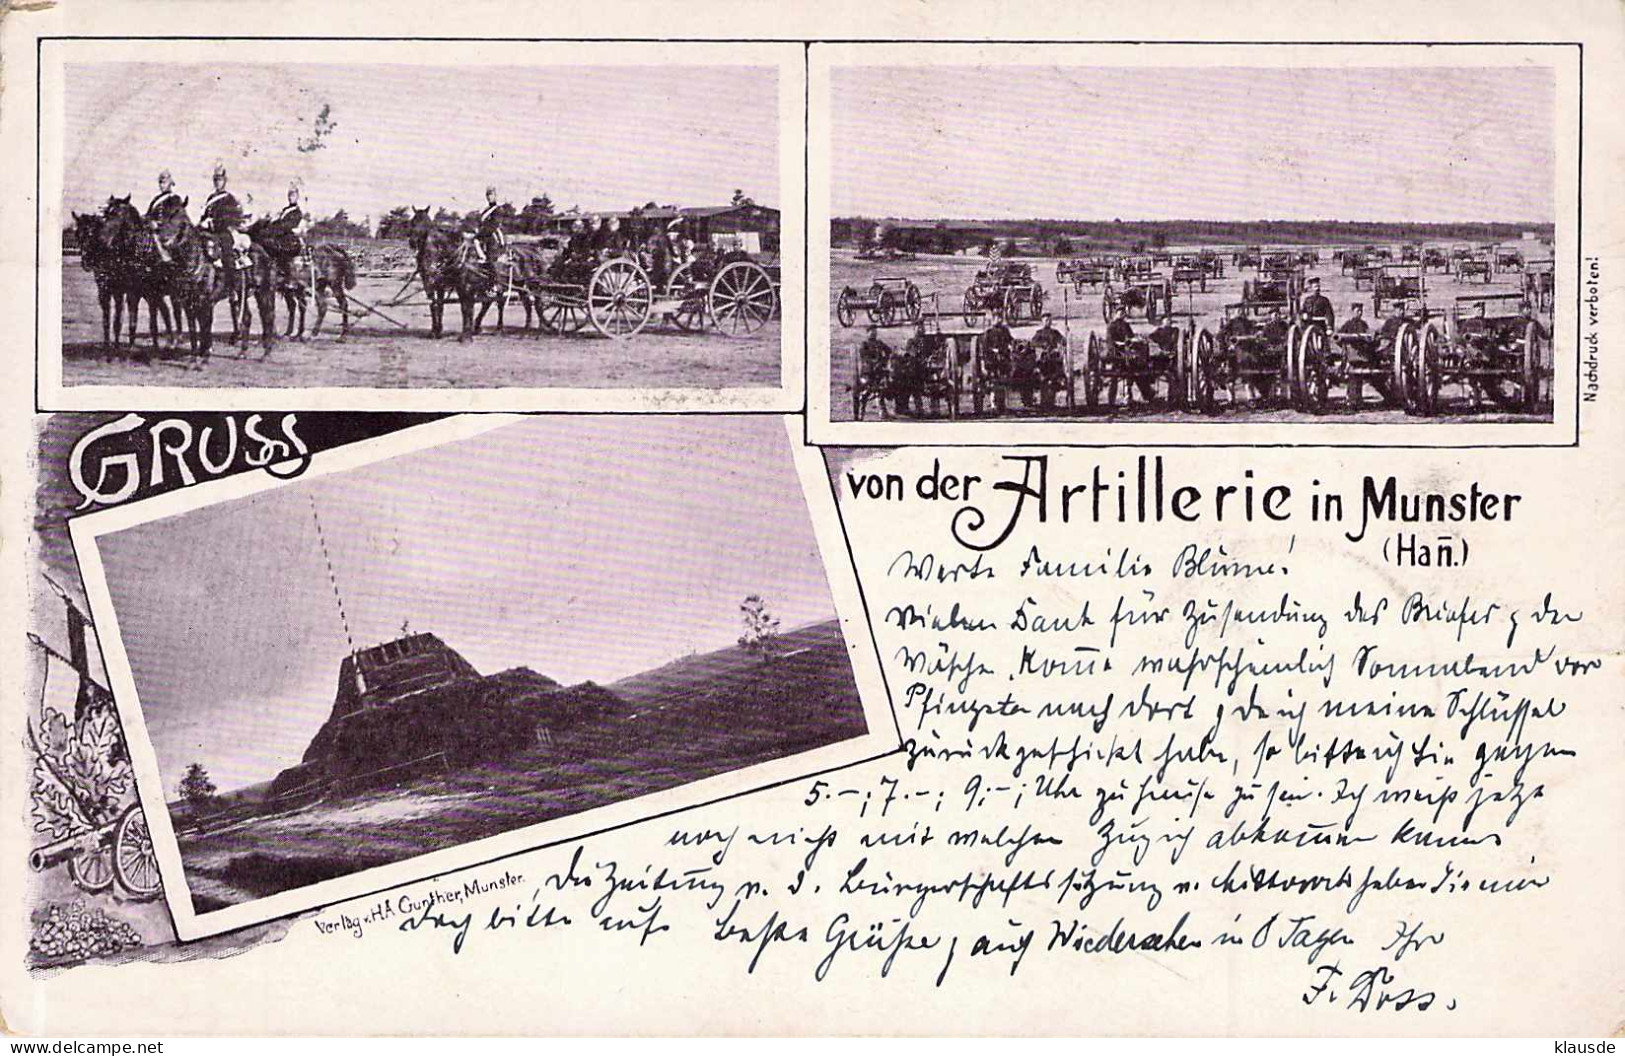 GRUSS
von der Artillerie in Munster
(Han̄.)
Nachdruck verboten!
Verlag v. H.A. Gunther, Munster.
Werte Familie Blume!
Vielen Dank für Zusendung des Briefes & der
Wäsche. Kom̄e wahrscheinlich Sonnabend vor
Pfingsten nach dort & da ich meine Schlüssel
zurückgeschickt habe, so bitte ich Sie gegen
5.–; 7.–; 9.–; Uhr zu Hause zu sein. Ich weiß jetzt
noch nicht mit welchem Zug ich abkom̄en kann.
Die Zeitung v. d. Bürgerschaftssitzung v. Mittwoch heben Sie mir
doch bitte auf. Beste Grüße & auf Wiedersehen in 8 Tagen Ihr
F. Doss.
klausde
www.delcampe.net